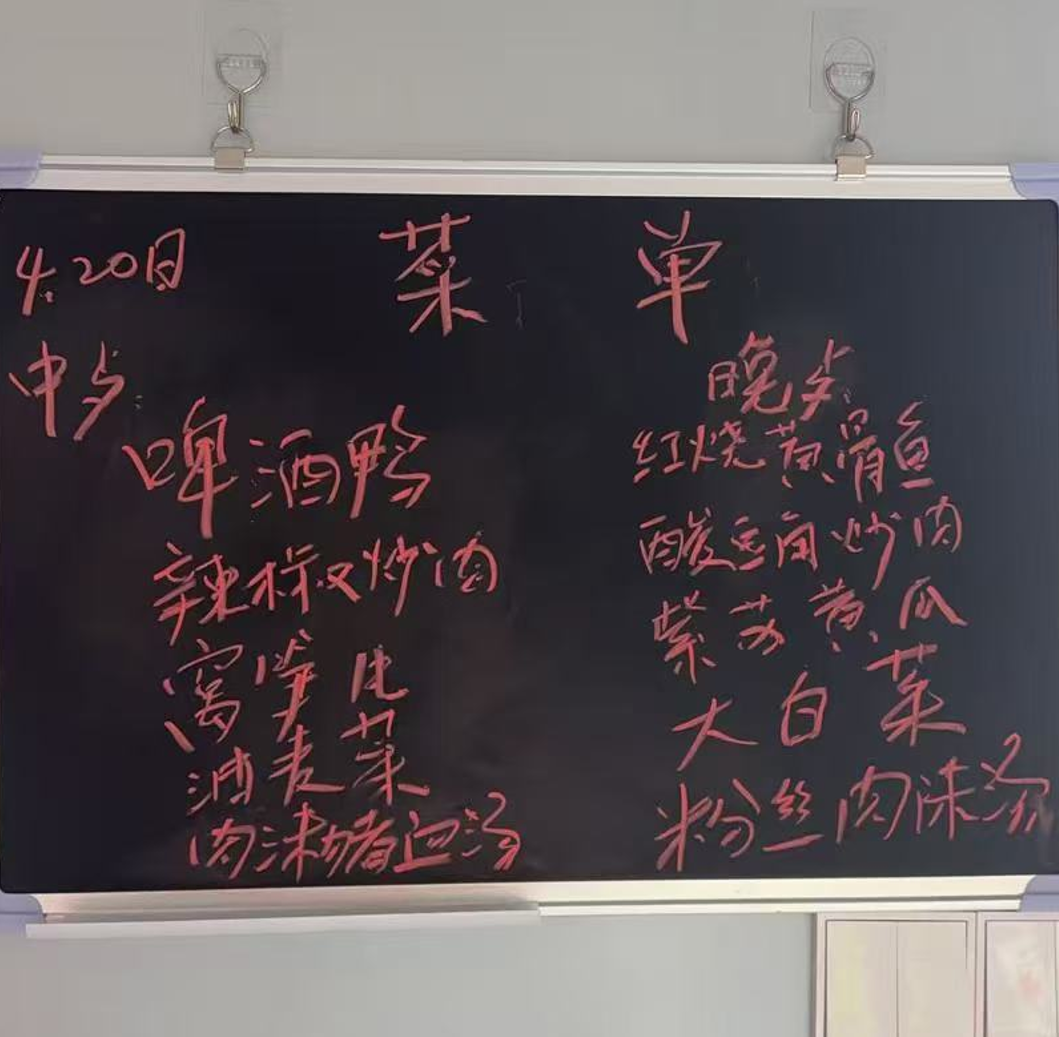 4.20日 菜 单
中歺:
啤酒鸭
辣椒炒肉
窝笋片
油麦菜
肉沫猪血汤
晚歺:
红烧黄骨鱼
酸豆角炒肉
紫苏黄瓜
大白菜
粉丝肉沫汤